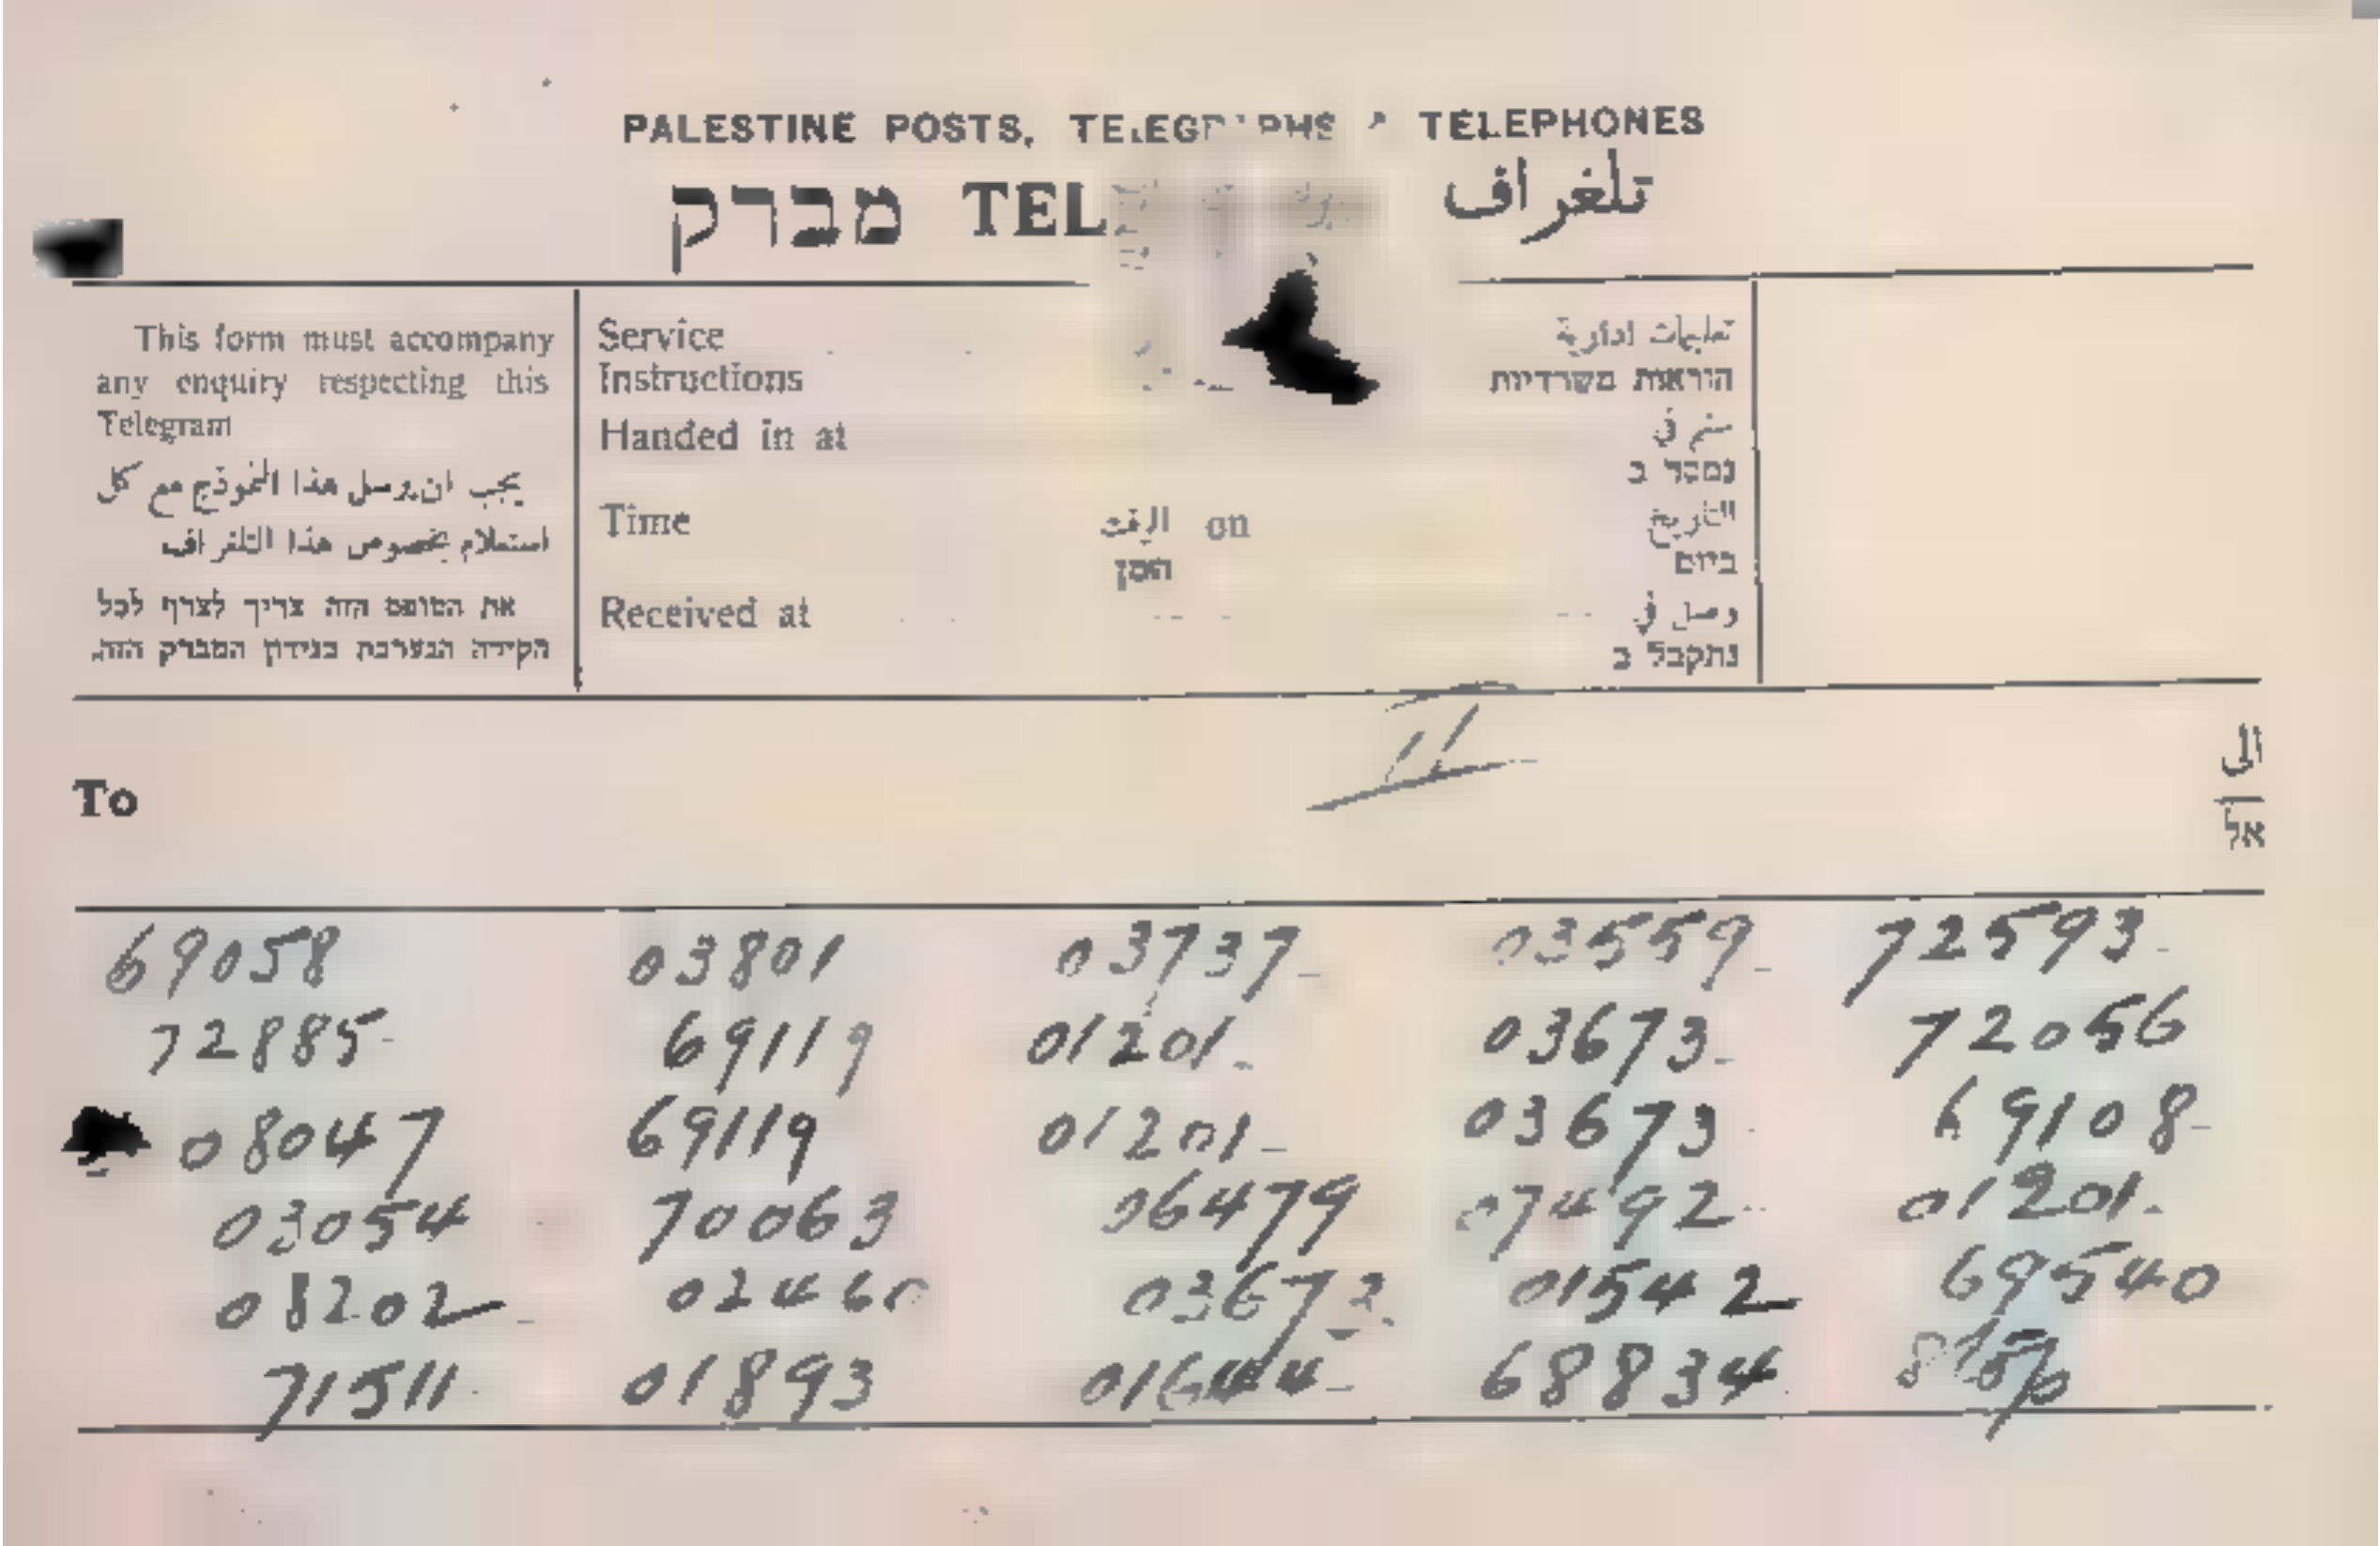 PALESTINE POSTS, TELEGRAPHS & TELEPHONES
מברק TEL تلغراف
This form must accompany
any enquiry respecting this
Telegram
يجب ان يرسل هذا النموذج مع كل
استعلام بخصوص هذا التلغراف
את הטופס הזה צריך לצרף לכל
חקירה הנערכת בנידון המברק הזה.
Service
Instructions
تعليمات ادارية
הוראות משרדיות
Handed in at
سلم في
נמסר ב
Time الوقت on التاريخ
הזמן ביום
Received at وصل في
נתקבל ב
11
To الى
אל
69058 03801 03737 03559 72593
72885 69119 01201 03673 72056
08047 69119 01201 03673 69108
03054 70063 06479 07492 01201
08202 02460 03673 01542 69540
71511 01893 01644 68834